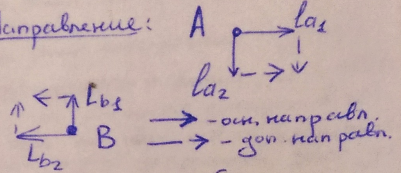 Направление: A la₁
la₂
Lb₁
B - осн. направл.
Lb₂ - доп. направл.